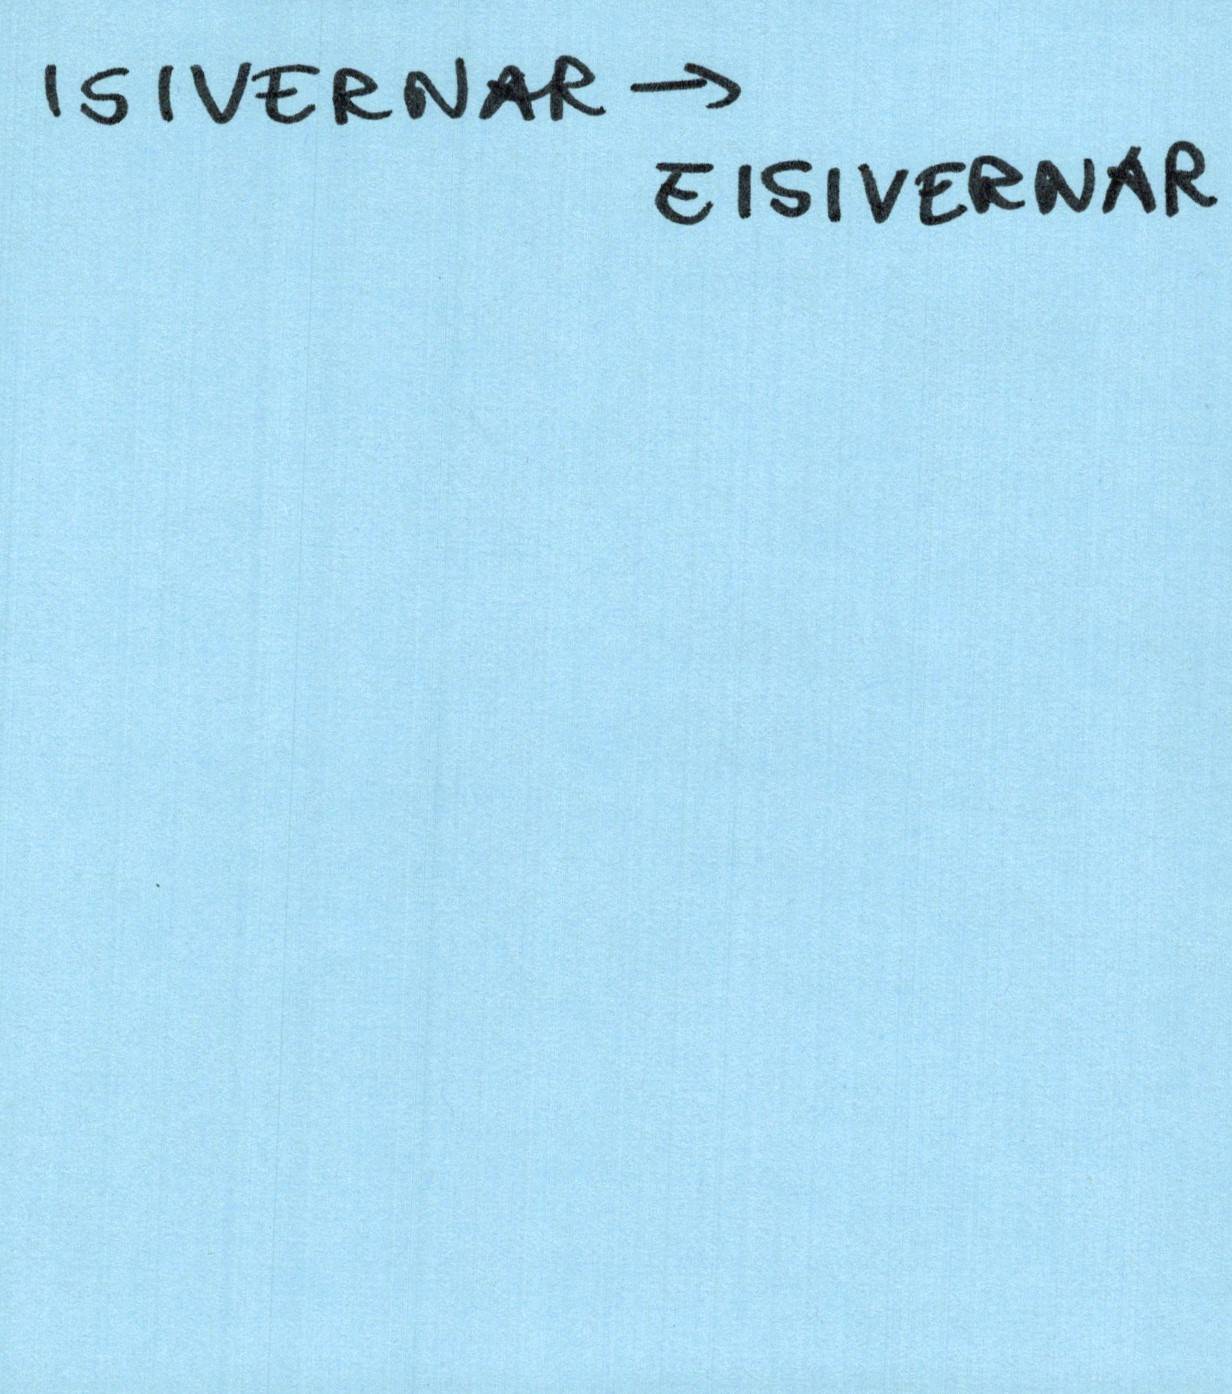 ISIVERNAR →
EISIVERNAR